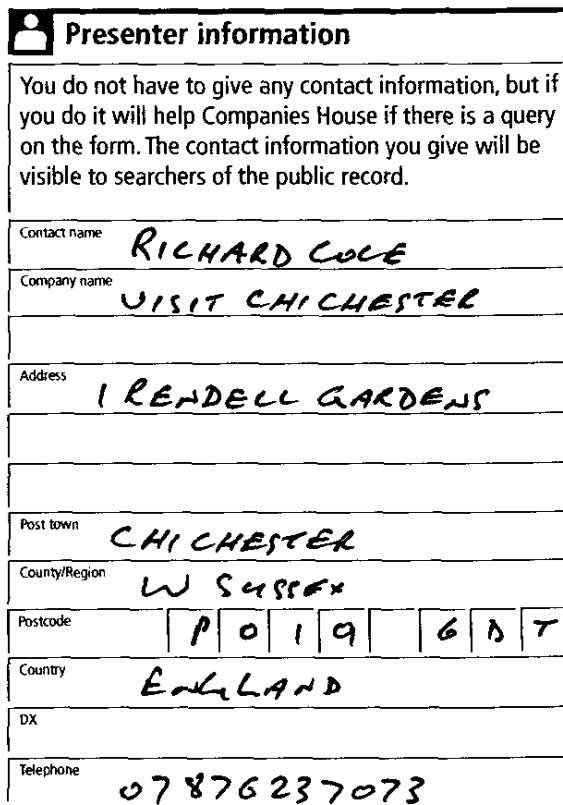 Presenter information
You do not have to give any contact information, but if
you do it will help Companies House if there is a query
on the form. The contact information you give will be
visible to searchers of the public record.
Contact name RICHARD COLE
Company name VISIT CHICHESTER
Address 1 RENDELL GARDENS
Post town CHICHESTER
County/Region W SUSSEX
Postcode PO19 6DT
Country ENGLAND
DX
Telephone 07876237073